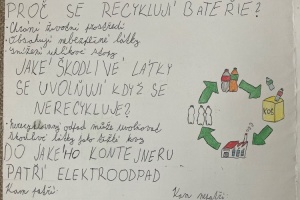 PROČ SE RECYKLUJÍ BATERIE?
•Chrání životní prostředí
•Obsahují nebezpečné látky
•Snížení uhlíkové stopy
JAKÉ ŠKODLIVÉ LÁTKY
SE UVOLŇUJÍ KDYŽ SE
NERECYKLUJE?
•Nerecyklovaný odpad může uvolňovat
škodlivé látky jako těžké kovy
DO JAKÉHO KONTEJNERU
PATŘÍ ELEKTROODPAD
Kam patří:
Kam nepatří: